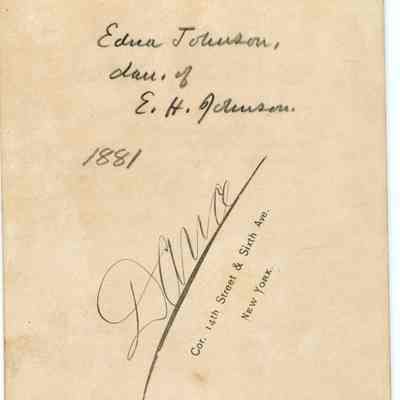 Edna Johnson,
dau. of
E. H. Johnson.
1881
Dana
Cor. 14th Street & Sixth Ave.
NEW YORK.